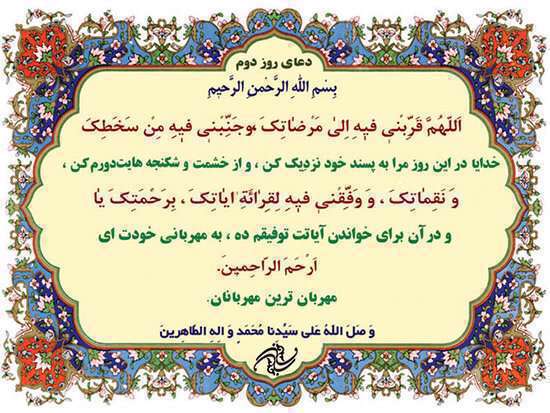 دعای روز دوم
بِسْمِ اللهِ الرَّحْمنِ الرَّحیمِ
اَللّهُمَّ قَرِّبْنی فیهِ اِلیٰ مَرْضاتِکَ وَجَنِّبْنی فیهِ مِنْ سَخَطِکَ
خدایا در این روز مرا به پسند خود نزدیک کن ، و از خشمت و شکنجه هایت دورم کن ،
وَ نَقِماتِکَ ، وَ وَفِّقْنی فیهِ لِقِرائَةِ ایاتِکَ ، بِرَحْمَتِکَ یا
و در آن برای خواندن آیاتت توفیقم ده ، به مهربانی خودت ای
اَرْحَمَ الرّاحِمینَ.
مهربان ترین مهربانان.
وَ صَلَّ اللهُ عَلی سَیِّدِنا مُحَمَّدٍ وَ الِهِ الطّاهِرینَ